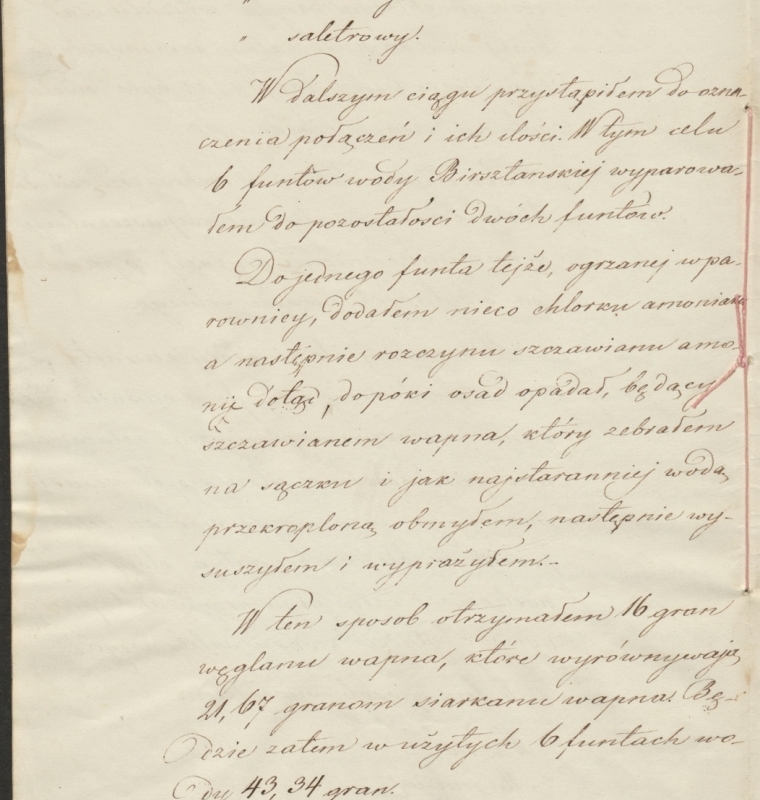 " saletrowy.
W dalszym ciągu przystąpiłem do ozna-
czenia połączeń i ich ilości. W tym celu
6 funtów wody Birsztanskiej wyparowa-
łem do pozostałosci dwóch funtów.
Do jednego funta tejże, ogrzanej w pa-
rownicy, dodałem nieco chlorku amoniaku
a następnie rozczynu szczawianu amo-
nji dotąd, dopóki osad opadał, będący
szczawianem wapna, który zebrałem
na sączku i jak najstaranniej wodą
przekroploną obmyłem, następnie wy-
suszyłem i wyprażyłem.-
W ten sposob otrzymałem 16 gran
węglanu wapna, które wyrównywają
21,67 granom siarkanu wapna. Bę-
dzie zatem w użytych 6 funtach wo-
dy 43,34 gran.